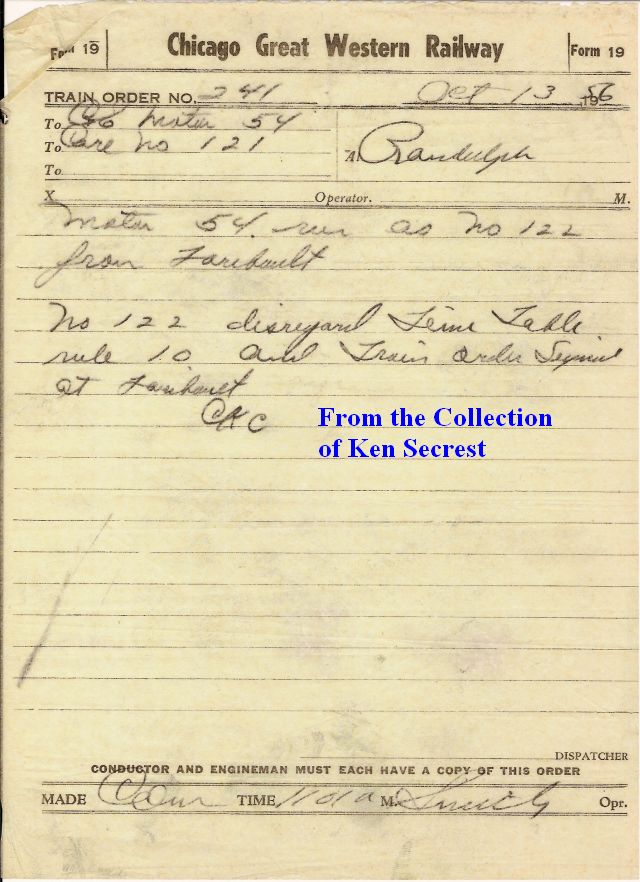 Form 19 Chicago Great Western Railway Form 19
TRAIN ORDER NO. 241 Oct 13 1956
To C&E Motor 54
To Care No 121 At Randolph
To
X Operator. M.
Motor 54 run as No 122
from Faribault
No 122 disregard Time Table
rule 10 and Train order Signal
at Faribault
CKC
From the Collection
of Ken Secrest
DISPATCHER
CONDUCTOR AND ENGINEMAN MUST EACH HAVE A COPY OF THIS ORDER
MADE Com TIME M. Opr.